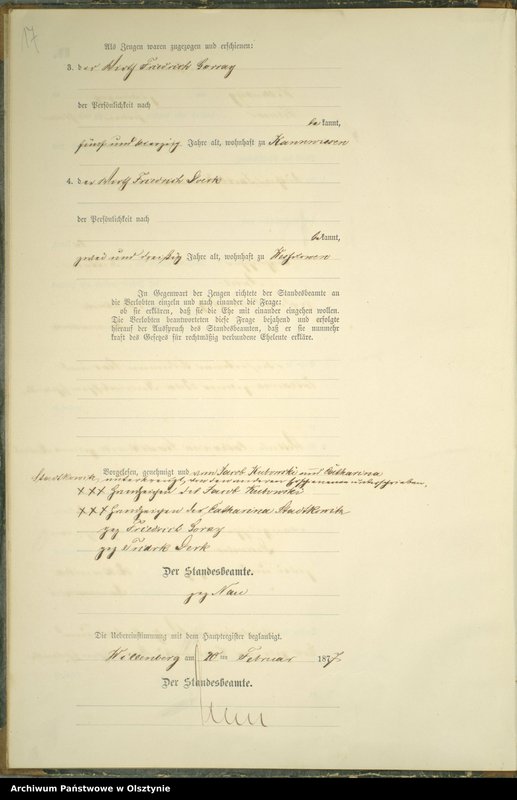 17
Als Zeugen waren zugezogen und erschienen:
3. der Wirth Friedrich Gorray
der Persönlichkeit nach
bekannt,
fünf und vierzig Jahre alt, wohnhaft zu
4. der Wirth Friedrich
der Persönlichkeit nach
bekannt,
zwei und dreißig Jahre alt, wohnhaft zu
In Gegenwart der Zeugen richtete der Standesbeamte an
die Verlobten einzeln und nach einander die Frage:
ob sie erklären, daß sie die Ehe mit einander eingehen wollen.
Die Verlobten beantworteten diese Frage bejahend und erfolgte
hierauf der Ausspruch des Standesbeamten, daß er sie nunmehr
kraft des Gesetzes für rechtmäßig verbundene Eheleute erkläre.
Vorgelesen, genehmigt und von Jacob und Catharina
unterkreuzt, von den anderen Erschienenen unterschrieben,
XXX Handzeichen des Jacob
XXX Handzeichen der Catharina
gez Friedrich Goray
gez
Der Standesbeamte.
gez
Die Uebereinstimmung mit dem Hauptregister beglaubigt.
Willenberg am 20 ten Februar 1877
Der Standesbeamte.
Archiwum Państwowe w Olsztynie